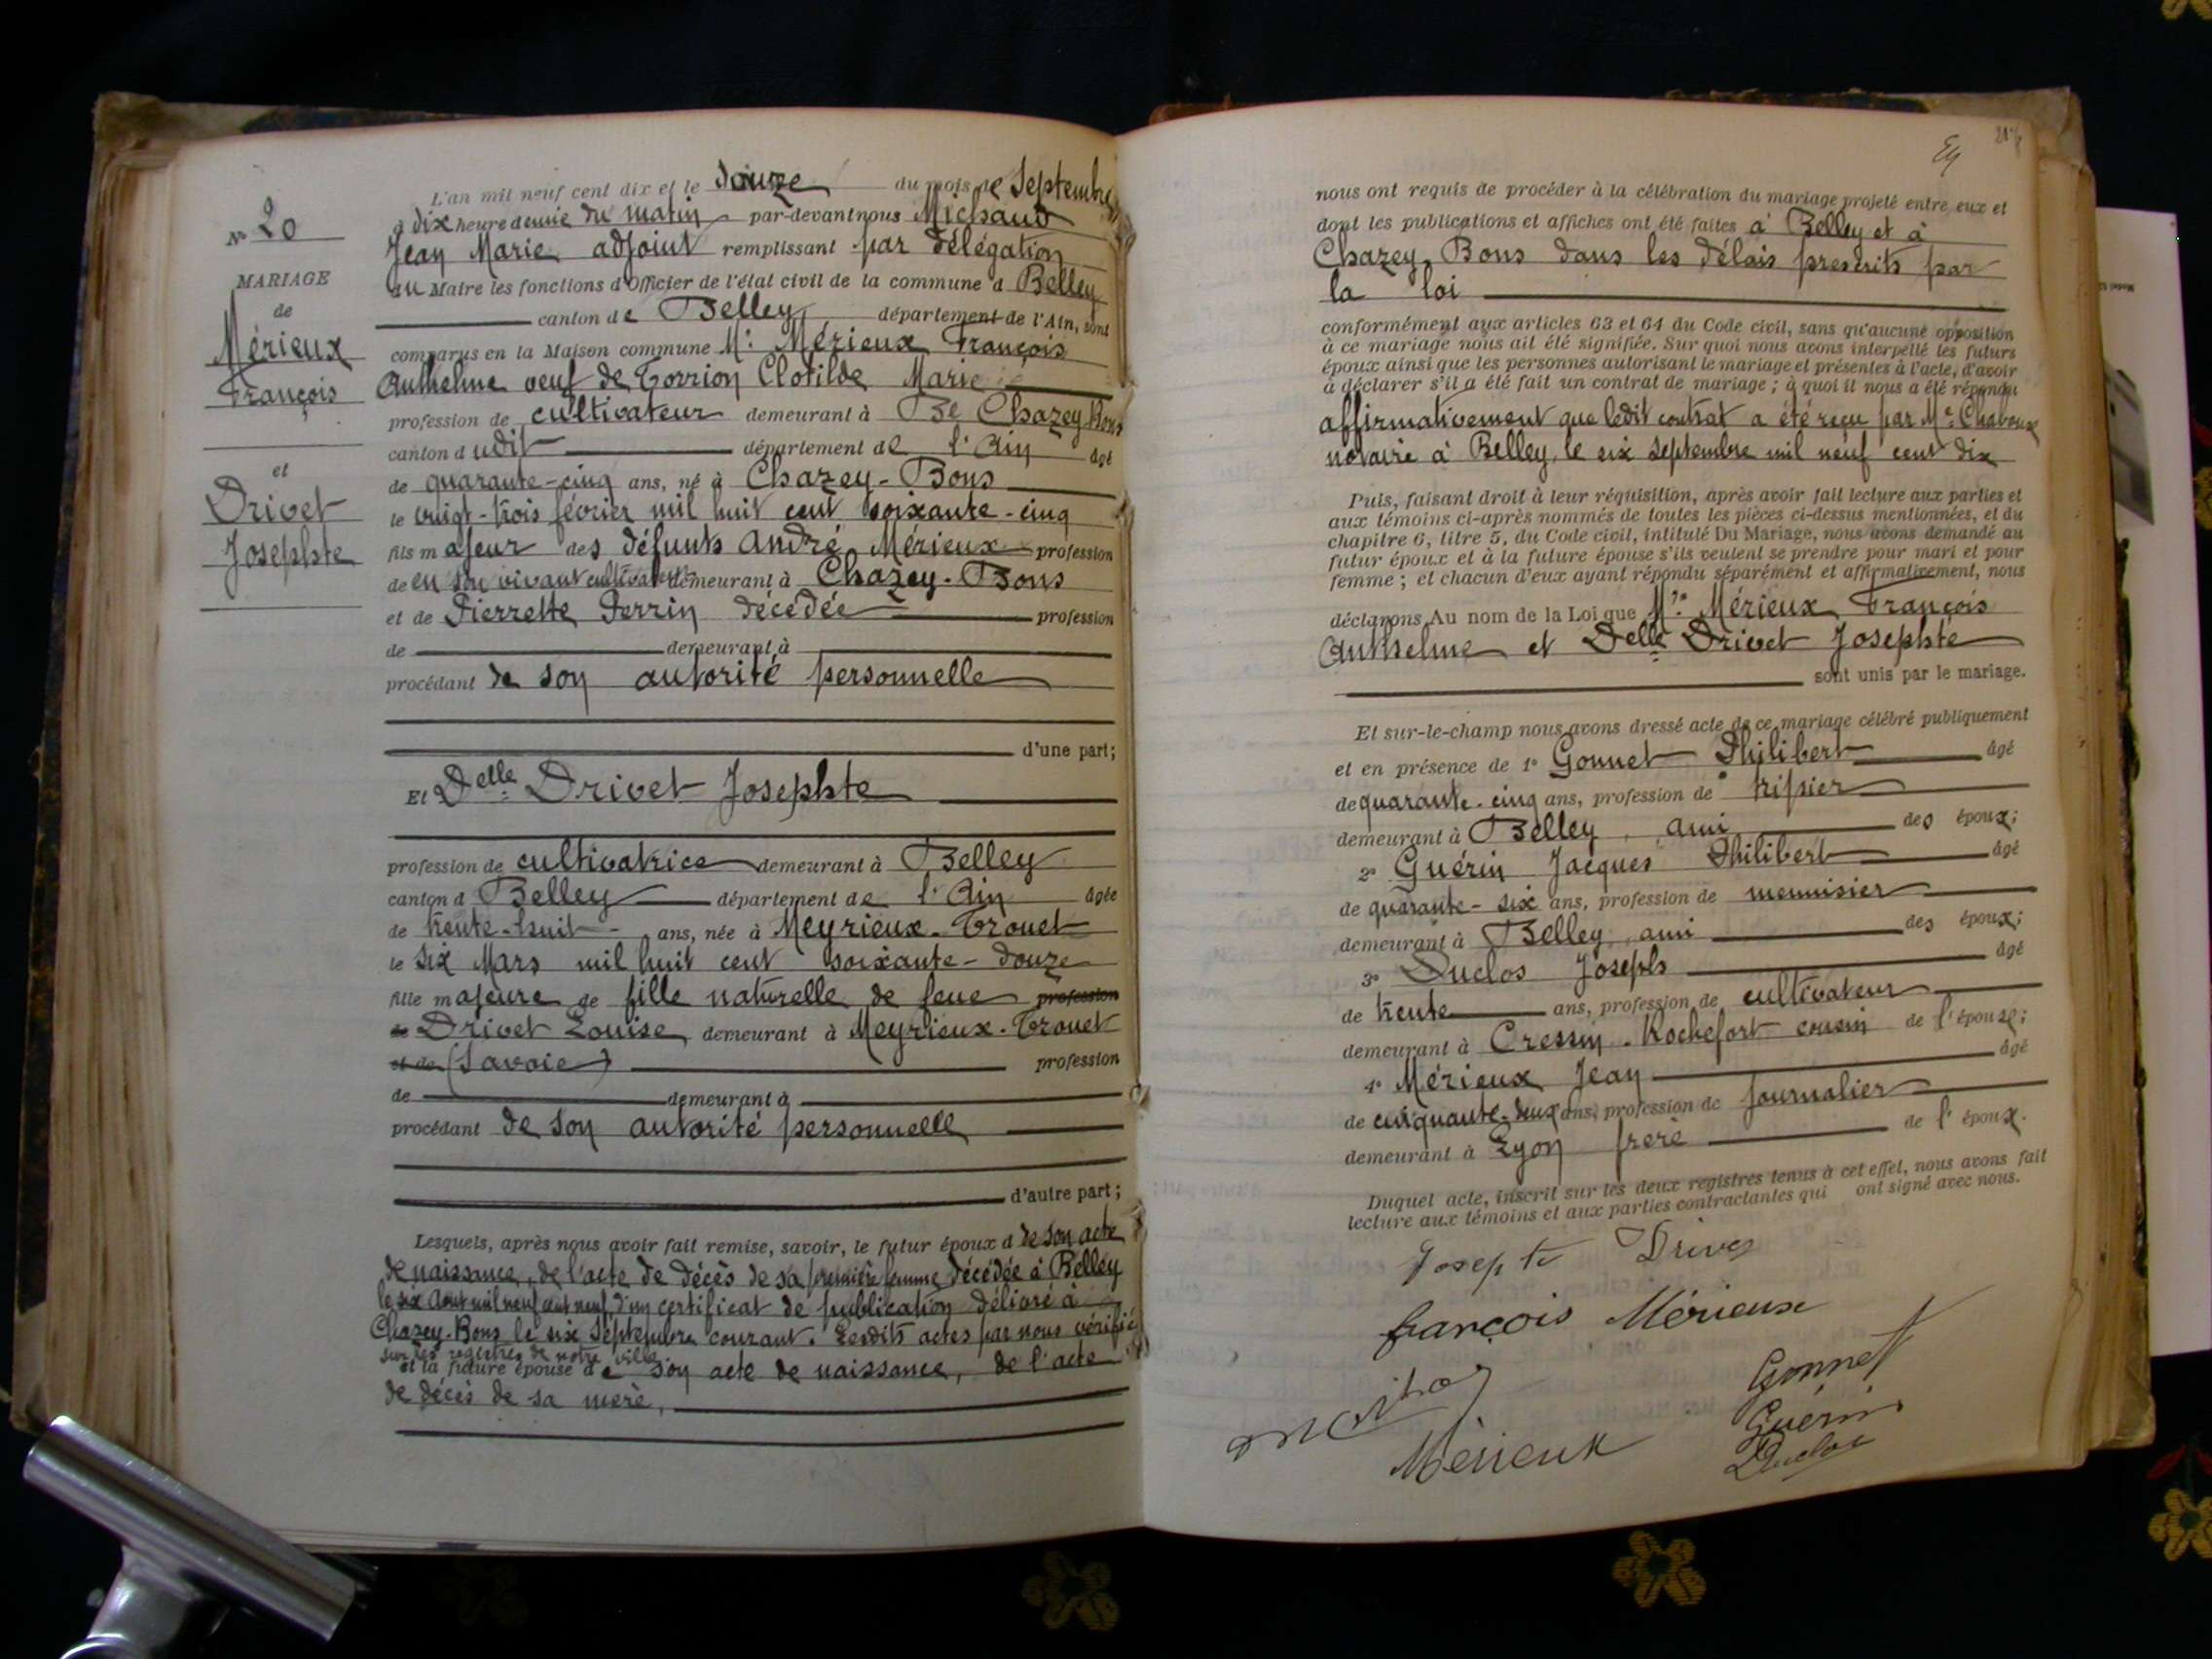 N° 20
MARIAGE
de
Mérieux
François
et
Drivet
Josephte
L'an mil neuf cent dix et le douze du mois de Septembre
à dix heure demie du matin par-devant nous Michaud
Jean Marie adjoint remplissant par délégation
du Maire les fonctions d'Officier de l'état civil de la commune d Belley
canton de Belley département de l'Ain, sont
comparus en la Maison commune Mr Mérieux François
Anthelme veuf de Torrion Clotilde Marie
profession de cultivateur demeurant à De Chazey Bons
canton dudit département de l'Ain âgé
de quarante-cinq ans, né à Chazey-Bons
le vingt-trois février mil huit cent soixante-cinq
fils majeur des défunts André Mérieux profession
de en son vivant cultivateur demeurant à Chazey-Bons
et de Pierrette Perrin décédée profession
de demeurant à
procédant de son autorité personnelle
d'une part;
Et Delle Drivet Josephte
profession de cultivatrice demeurant à Belley
canton d Belley département de l'Ain âgée
de trente-huit ans, née à Meyrieux-Trouet
le six Mars mil huit cent soixante-douze
fille majeure de fille naturelle de feue profession
de Drivet Louise demeurant à Meyrieux-Trouet
et de (Savoie) profession
de demeurant à
procédant de son autorité personnelle
d'autre part;
Lesquels, après nous avoir fait remise, savoir, le futur époux d de son acte
de naissance, de l'acte de décès de sa première femme décédée à Belley
le six Aout mil neuf cent neuf, d'un certificat de publication délivré à
Chazey-Bons le six Septembre courant. Lesdits actes par nous vérifiés
sur les registres de notre ville
et la future épouse de son acte de naissance, de l'acte
de décès de sa mère,
nous ont requis de procéder à la célébration du mariage projeté entre eux et
dont les publications et affiches ont été faites à Belley et à
Chazey-Bons dans les délais prescrits par
la loi
conformément aux articles 63 et 64 du Code civil, sans qu'aucune opposition
à ce mariage nous ait été signifiée. Sur quoi nous avons interpellé les futurs
époux ainsi que les personnes autorisant le mariage et présentes à l'acte, d'avoir
à déclarer s'il a été fait un contrat de mariage; à quoi il nous a été répondu
affirmativement que ledit contrat a été reçu par Me Chaboux
notaire à Belley, le six Septembre mil neuf cent dix
Puis, faisant droit à leur réquisition, après avoir fait lecture aux parties et
aux témoins ci-après nommés de toutes les pièces ci-dessus mentionnées, et du
chapitre 6, titre 5, du Code civil, intitulé Du Mariage, nous avons demandé au
futur époux et à la future épouse s'ils veulent se prendre pour mari et pour
femme; et chacun d'eux ayant répondu séparément et affirmativement, nous
déclarons Au nom de la Loi que Mr Mérieux François
Anthelme et Delle Drivet Josephte
sont unis par le mariage.
Et sur-le-champ nous avons dressé acte de ce mariage célébré publiquement
et en présence de 1° Gonnet Philibert âgé
de quarante-cinq ans, profession de tripier
demeurant à Belley, ami des époux;
2° Guérin Jacques Philibert âgé
de quarante-six ans, profession de menuisier
demeurant à Belley, ami des époux;
3° Duclos Joseph âgé
de trente ans, profession de cultivateur
demeurant à Cressin-Rochefort cousin de l'épouse;
4° Mérieux Jean âgé
de cinquante-deux ans, profession de journalier
demeurant à Lyon frère de l'époux.
Duquel acte, inscrit sur les deux registres tenus à cet effet, nous avons fait
lecture aux témoins et aux parties contractantes qui ont signé avec nous.
Josepte Drivet
françois Mérieux
Gonnet
Guérin
Mérieux
Duclos